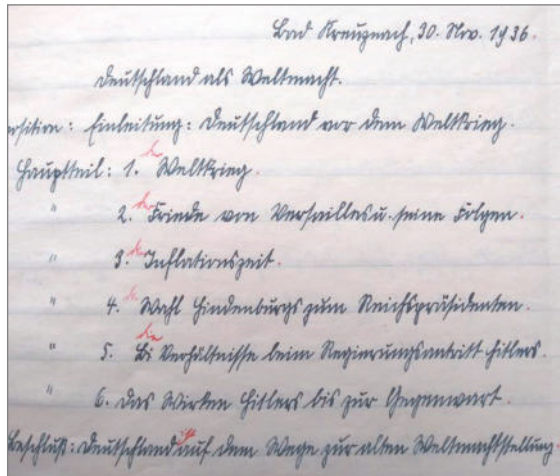 Bad Kreuznach, 30. Nov. 1936.
Deutschland als Weltmacht.
osition: Einleitung: Deutschland vor dem Weltkrieg.
Hauptteil: 1. der Weltkrieg.
" 2. der Friede von Versailles u. seine Folgen.
" 3. die Inflationszeit.
" 4. die Wahl Hindenburgs zum Reichspräsidenten.
" 5. die Verhältnisse beim Regierungsantritt Hitlers.
" 6. Das Wirken Hitlers bis zur Gegenwart.
Beschluß: Deutschland ist auf dem Wege zur alten Weltmachtstellung.